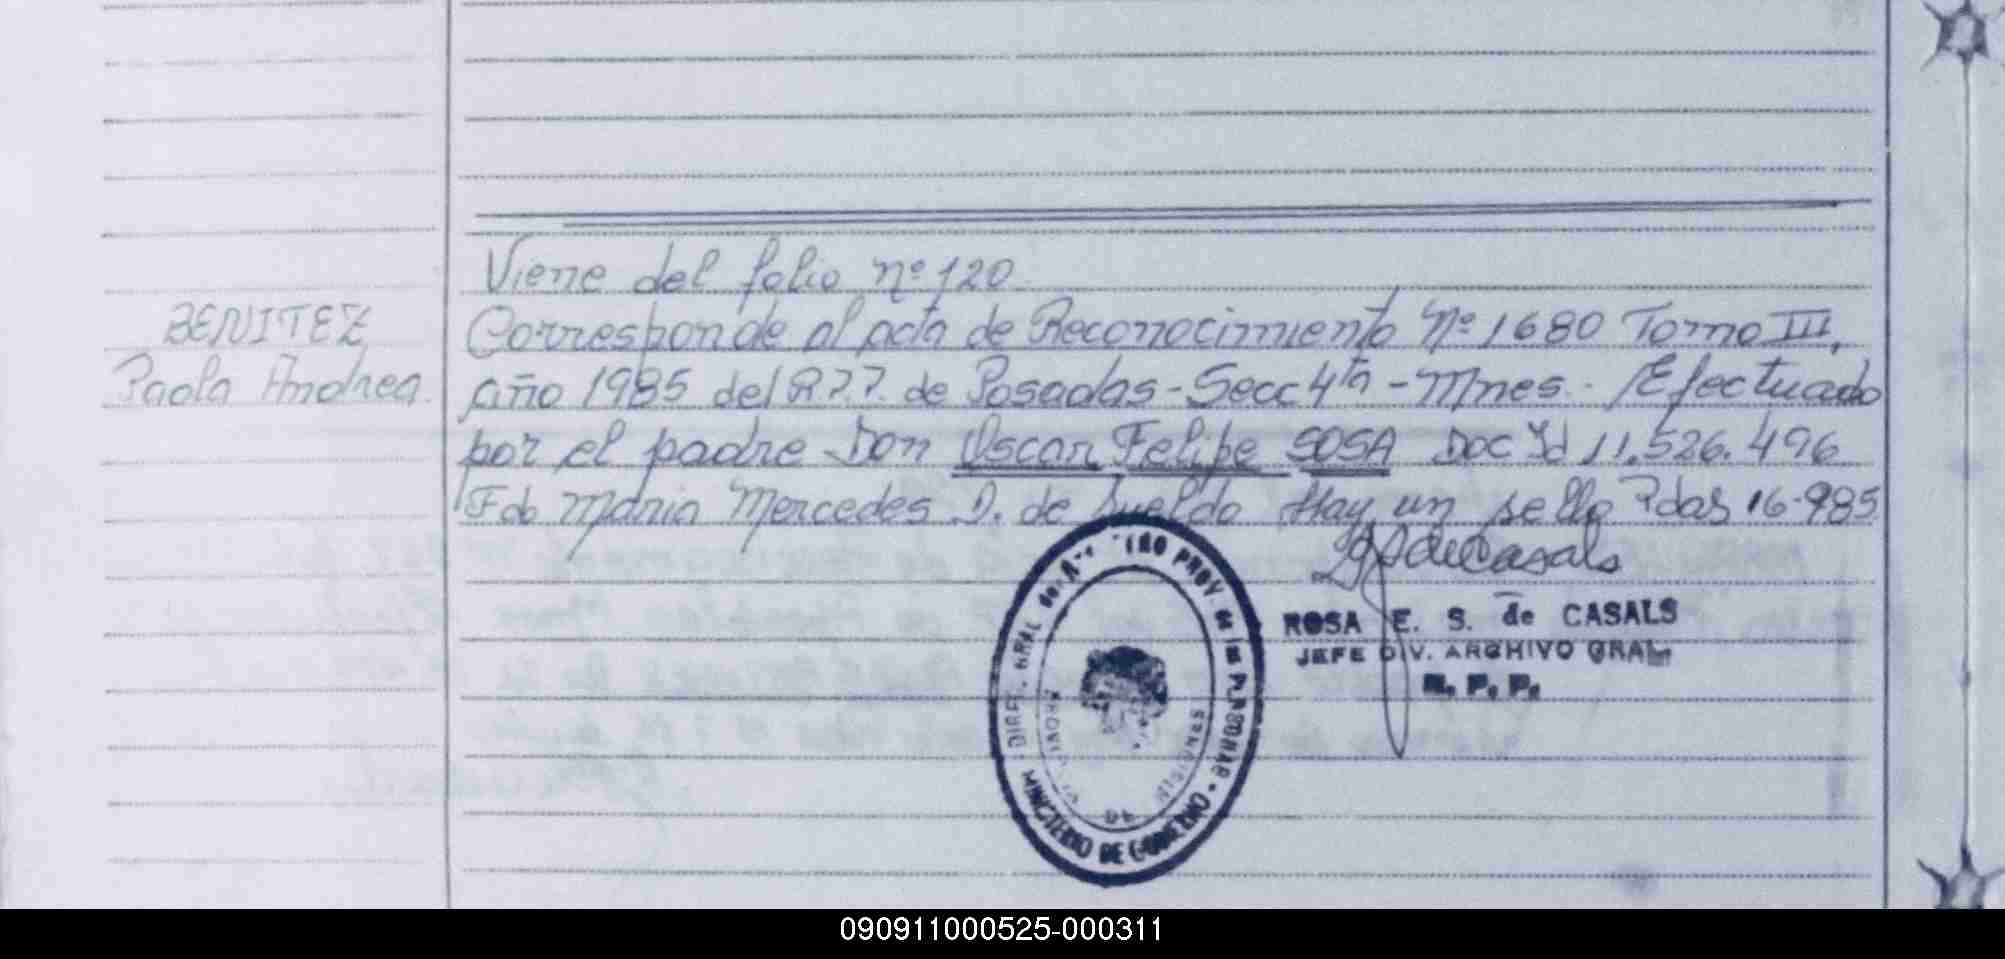 Viene del folio nº 120
BENITEZ
Corresponde al acta de Reconocimiento Nº 1680 Tomo III,
Paola Andrea.
año 1985 del R.P.P. de Posadas - Secc 4ta - Mnes. - Efectuado
por el padre Don Oscar Felipe SOSA Doc Id 11.526.496
Fdo Maria Mercedes D. de Sueldo Hay un sello Pdas 16-985
ROSA E. S. de CASALS
JEFE DIV. ARCHIVO GRAL
R. P. P.
DIREC. GRAL PROV. de las PERSONAS -
MINISTERIO DE GOBIERNO -
PROVINCIA DE MISIONES
090911000525-000311